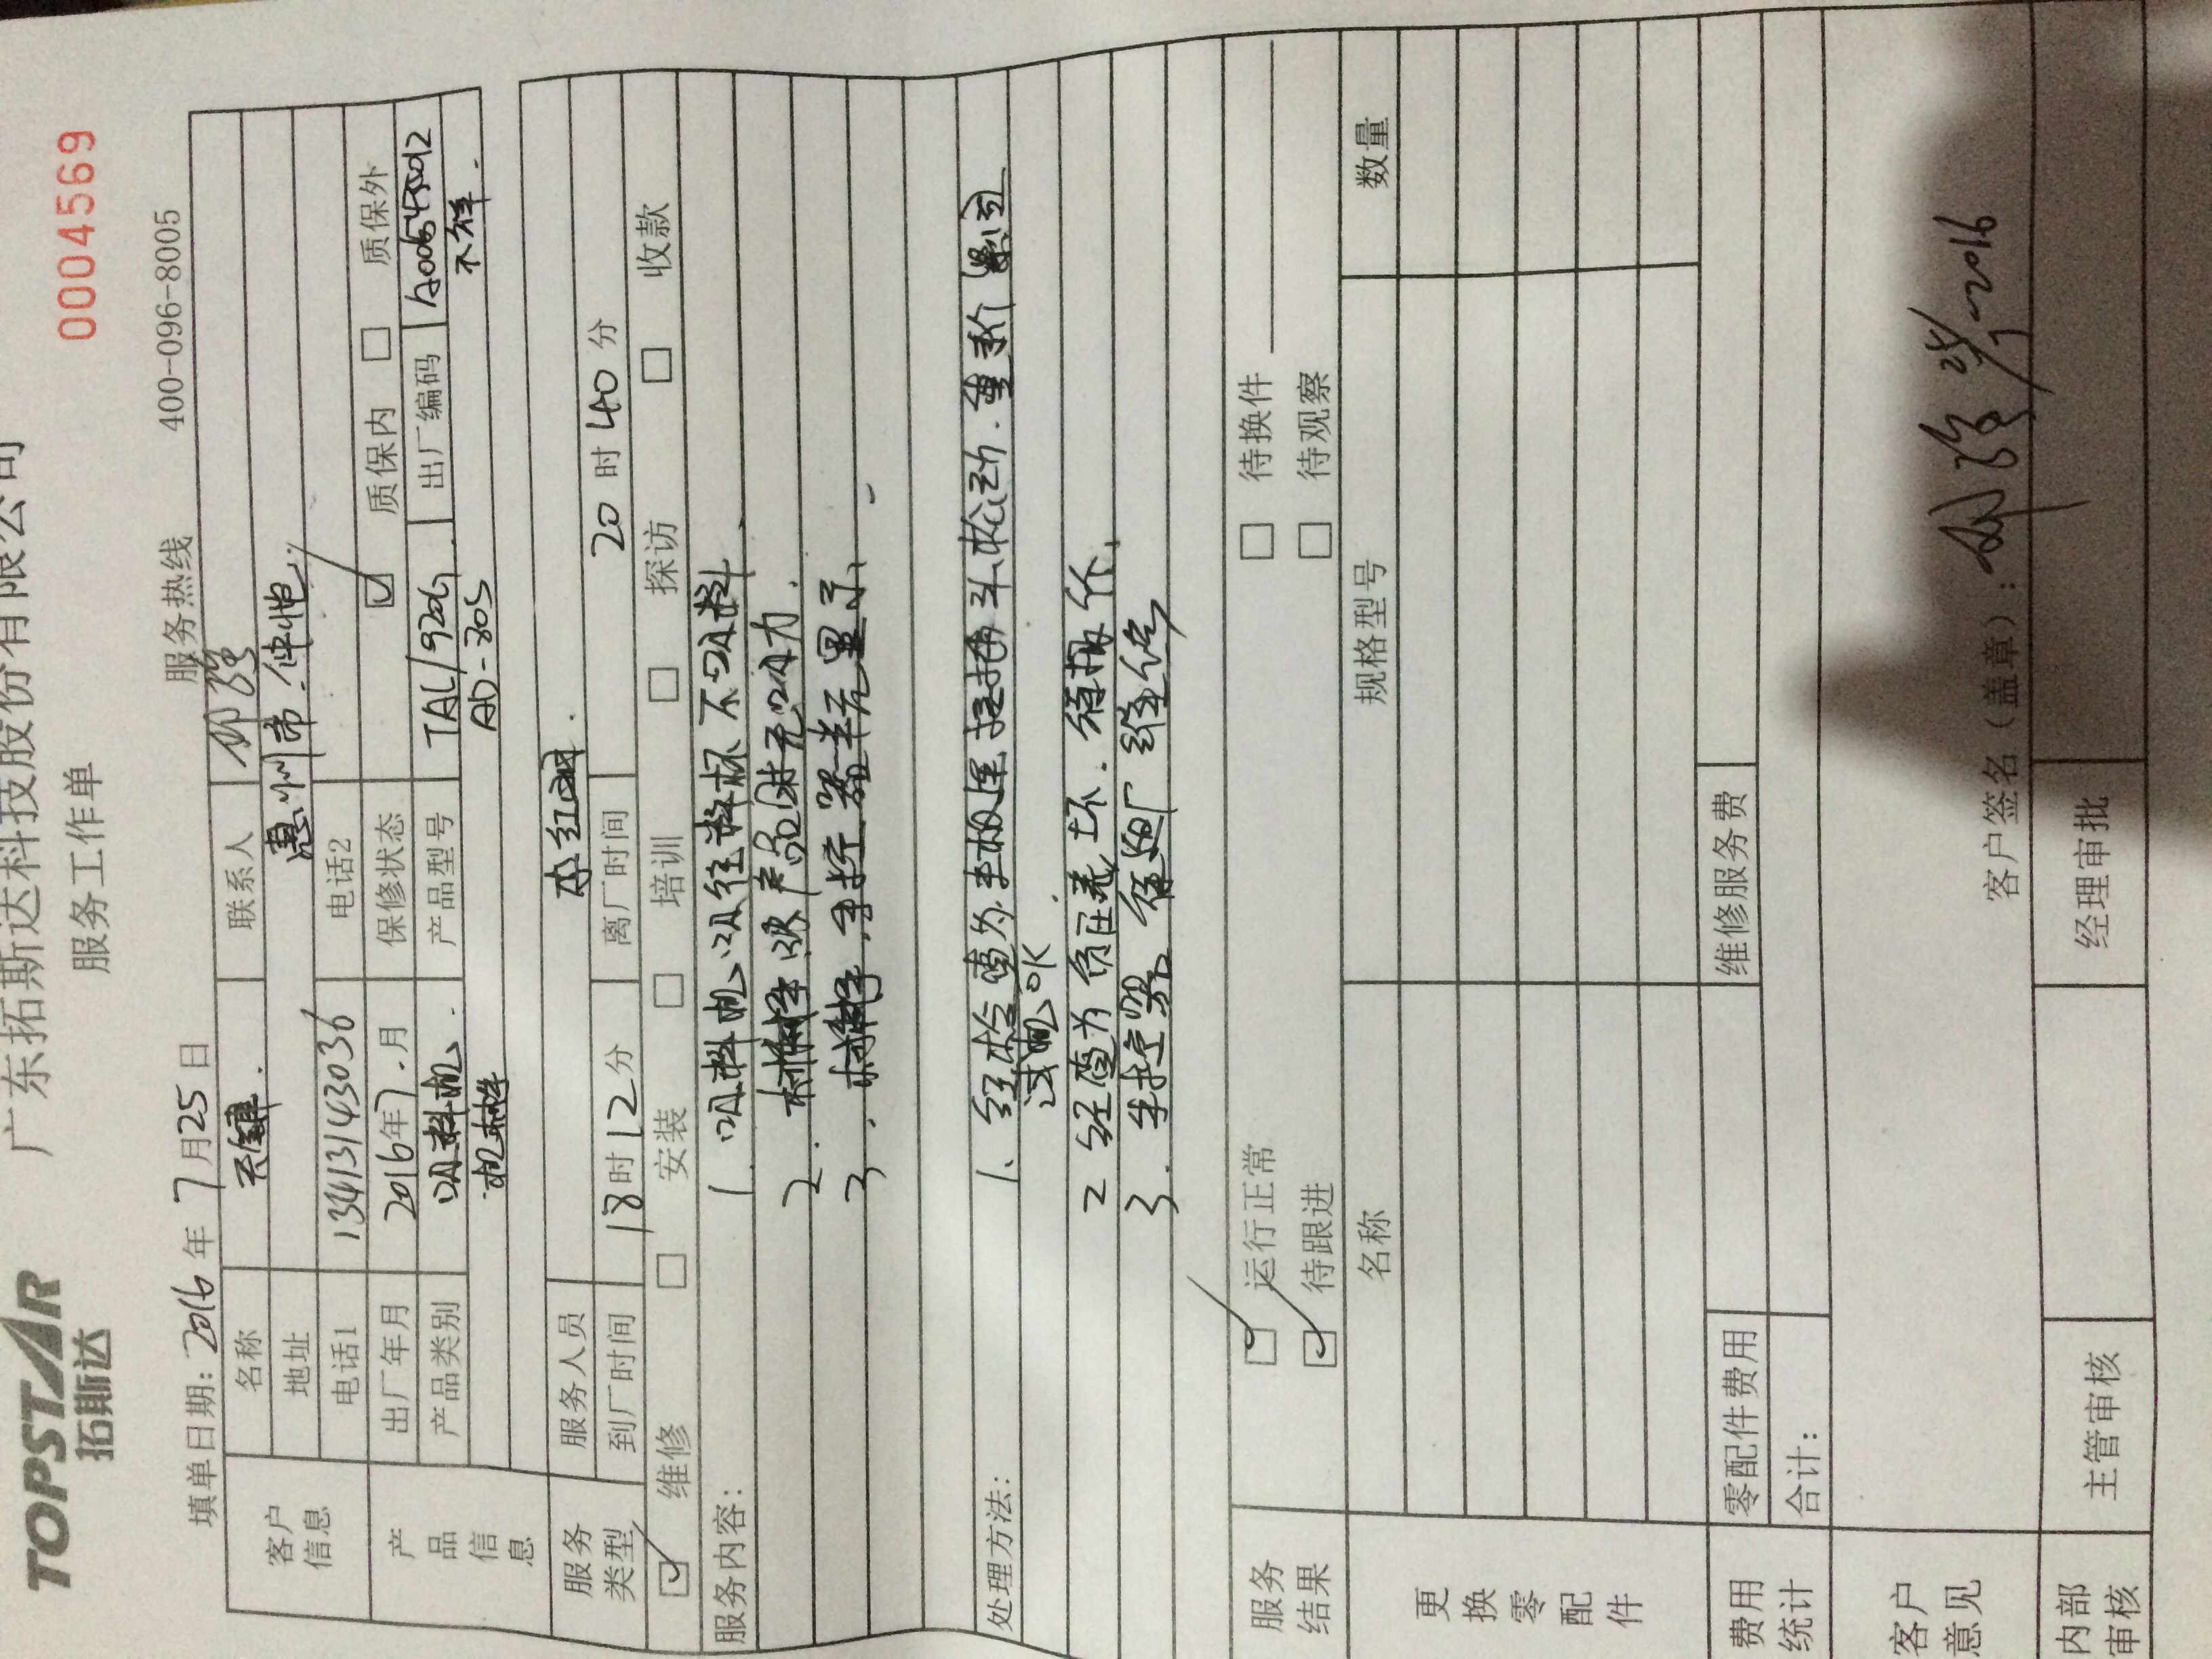 TOPSTAR
拓斯达
广东拓斯达科技股份有限公司
服务工作单
0004569
填单日期: 2016 年 7 月 25 日
服务热线 400-096-8005
客户信息
名称 天健. 联系人
地址 惠州市.仲恺
电话1 13413143036 电话2
产品信息
出厂年月 2016年7.月 保修状态 ☑ 质保内 □ 质保外
产品类别 吸料机. 产品型号 TAL/920G 出厂编码
机械手 AD-80S 不详.
服务类型
服务人员 李红
到厂时间 18时12分 离厂时间 20时40分
☑ 维修 □ 安装 □ 培训 □ 探访 □ 收款
服务内容:
1 吸料机吸往料杯不吸料
2. 机械手吸产品时无吸力.
3. 机械手.手控器半无显示
处理方法:
1、经检查为 松动.重新
试机OK
2 经查为负压 坏.须报价
3. 手控器,须返厂维修
服务结果
☑ 运行正常 □ 待换件
☑ 待跟进 □ 待观察
更换零配件
名称 规格型号 数量
费用统计
零配件费用 维修服务费
合计:
客户意见
客户签名(盖章): 2016
内部审核
主管审核 经理审批